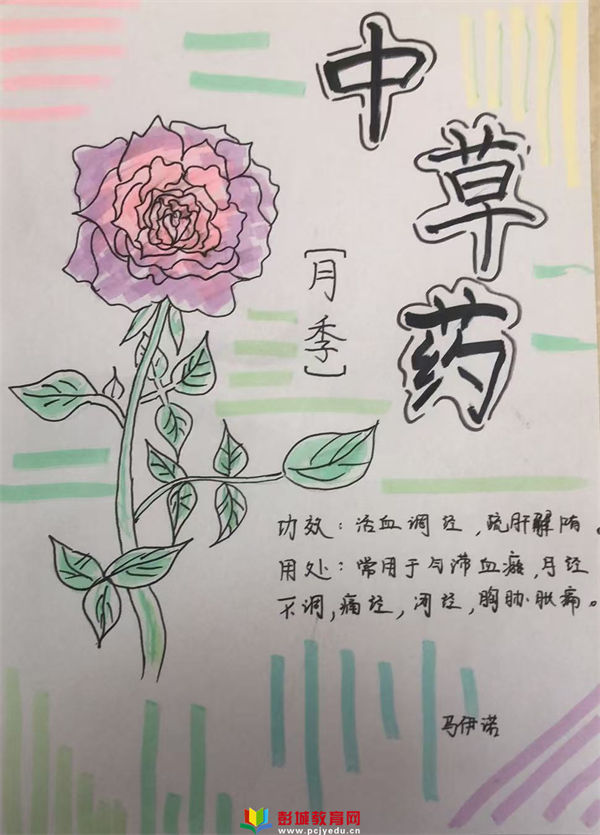 中草药
[月季]
功效：活血调经，疏肝解
用处：常用于与滞血瘀，月经
不调，痛经，闭经，胸胁胀痛。
马伊诺
彭城教育网
www.pcjyedu.cn